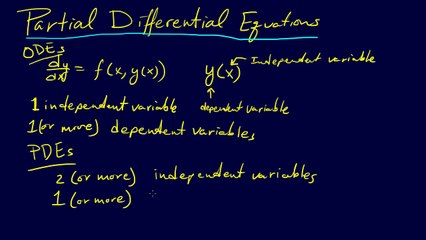 Partial Differential Equations
ODEs
dy/dx = f(x, y(x))   y(x)   Independent variable
dependent variable
1 independent variable
1 (or more) dependent variables
PDEs
2 (or more) independent variables
1 (or more)